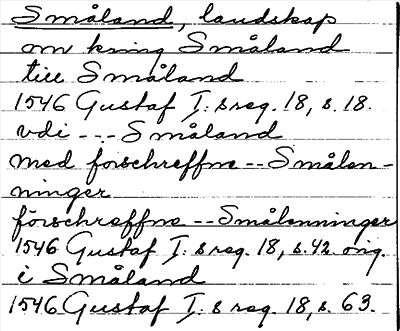 Småland, landskap
om kring Småland
till Småland
1546 Gustaf I: s reg. 18, s. 18.
vdi --- Småland
med forschreffne -- Smålen-
ninger
förschreffne -- Smålenninger
1546 Gustaf I: s reg. 18, s. 42. orig.
i Småland
1546 Gustaf I: s reg. 18, s. 63.